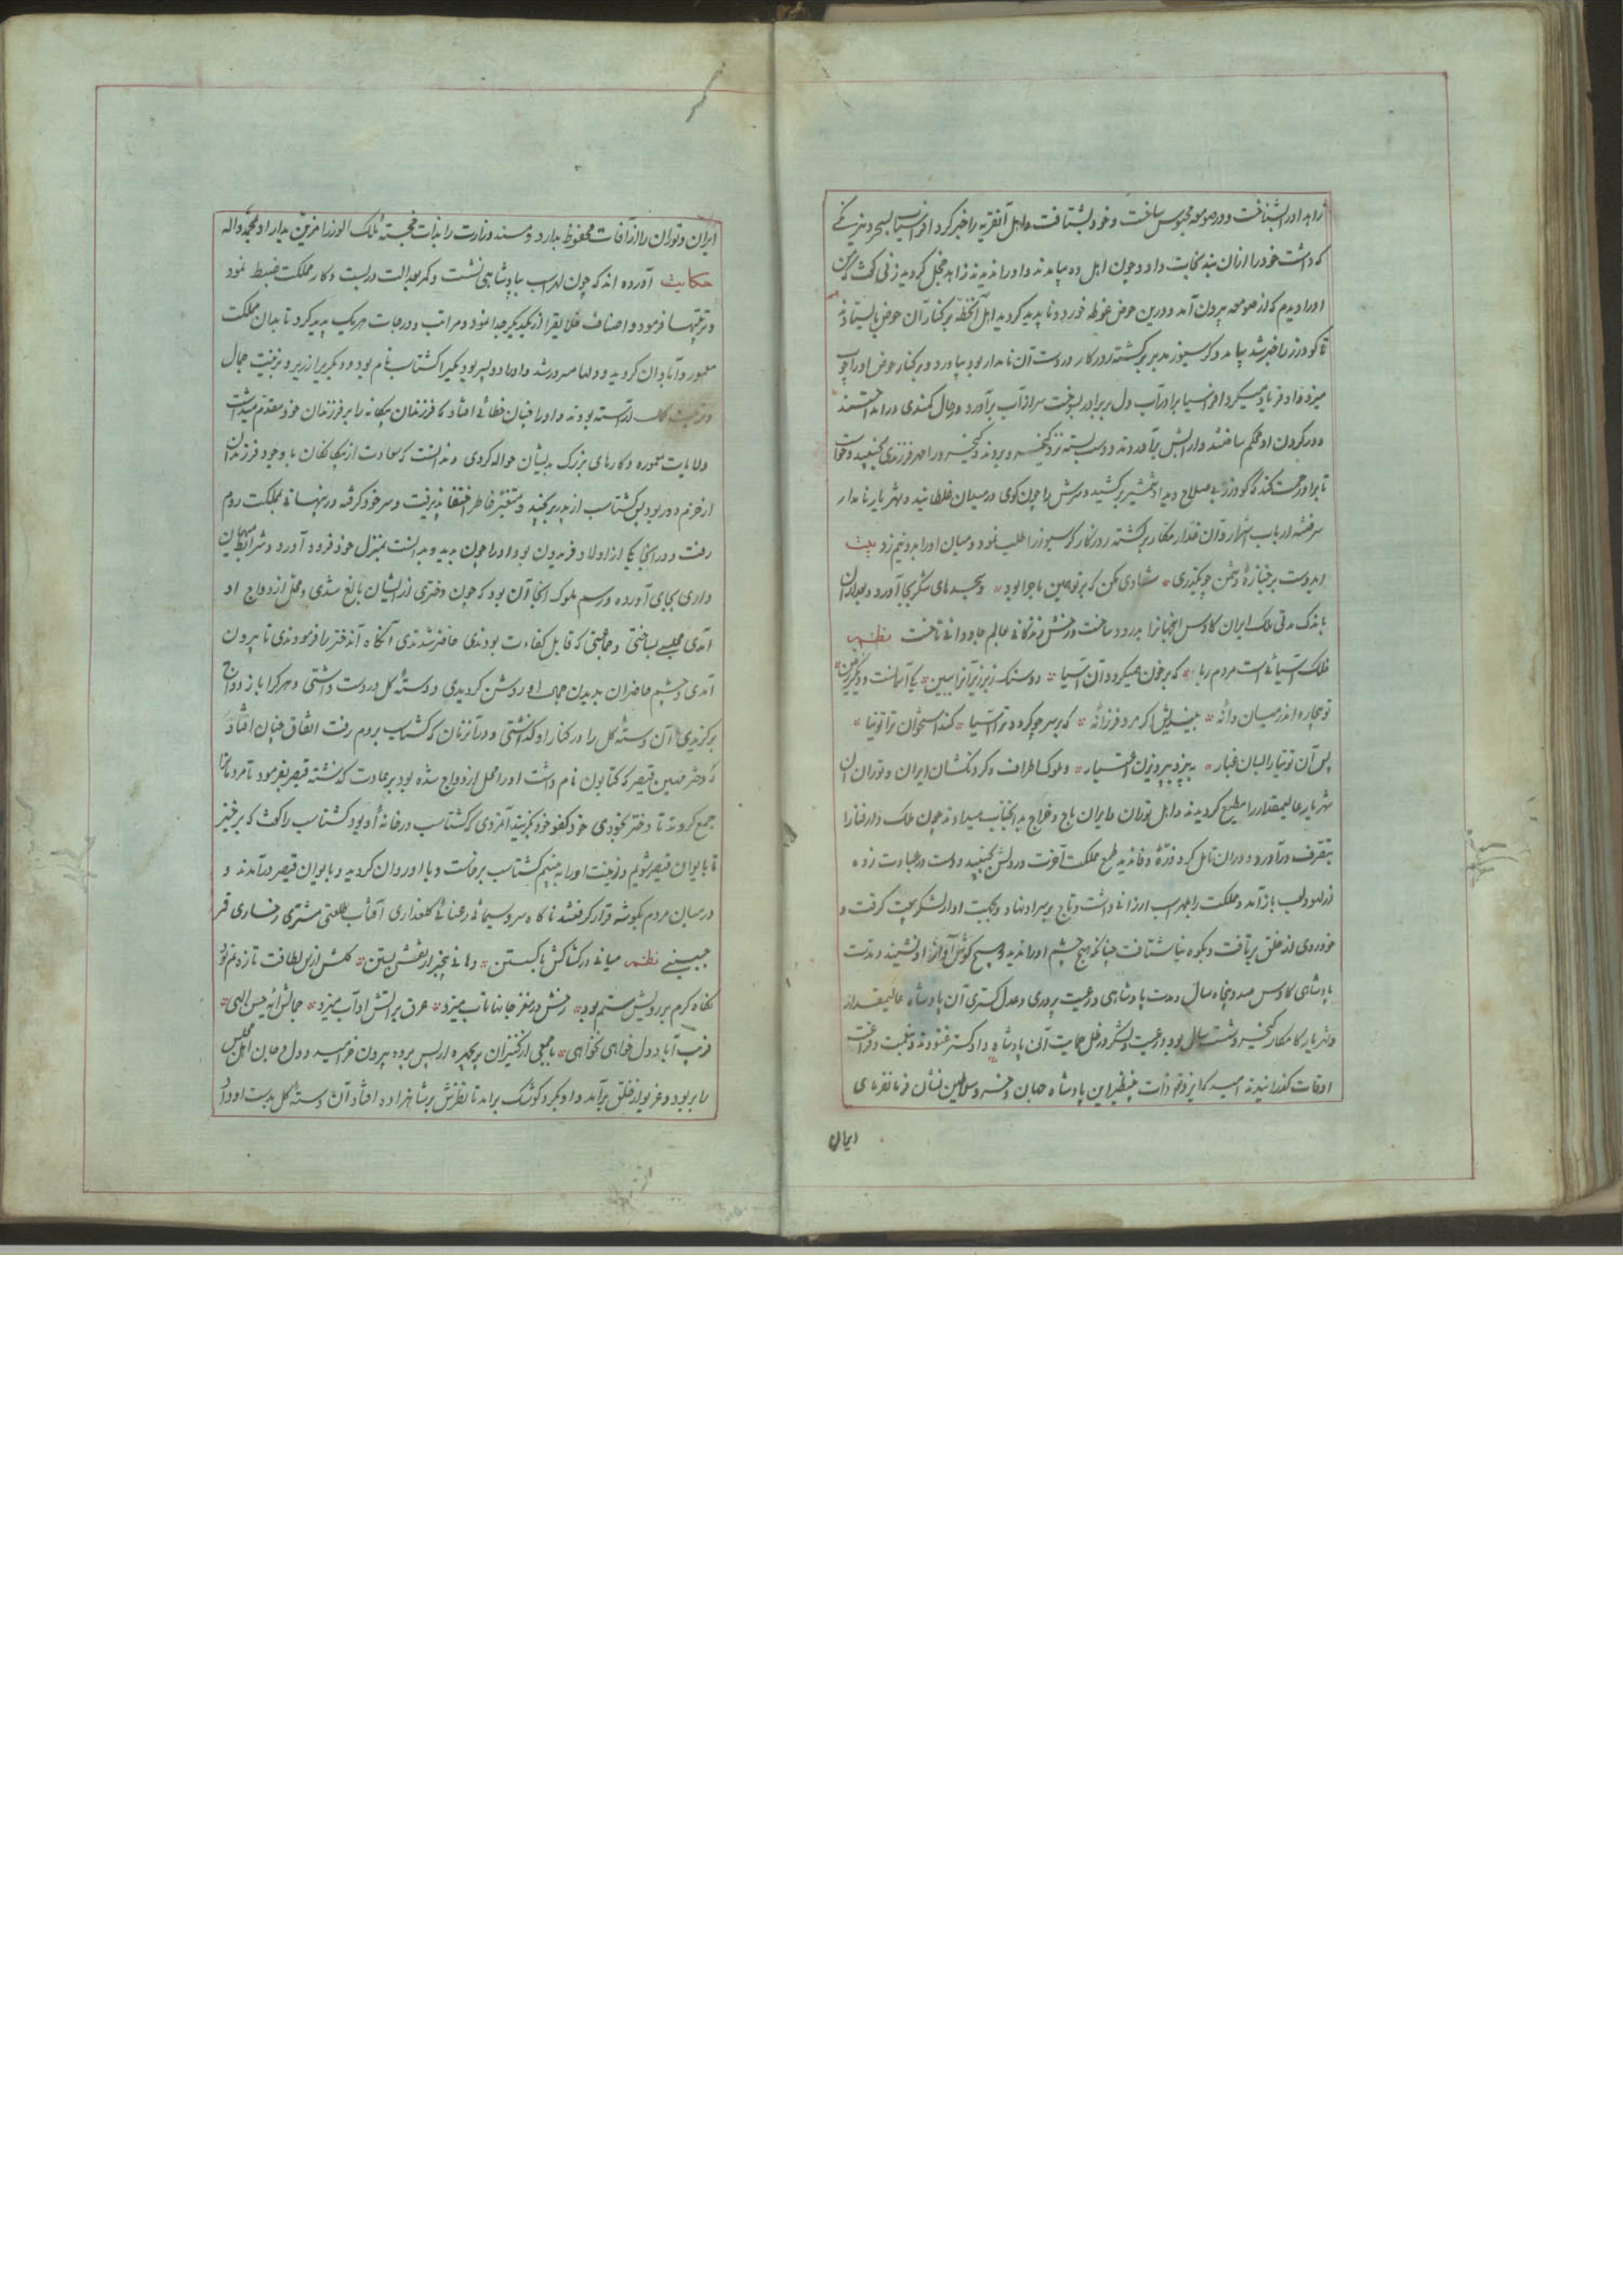 زاهد او را بشناخت و در صومعه محبوس ساخت و خود بشتافت و اهل آنقریه را خبر کرد افراسیاب بسحر و نیرنگی
که داشت خود را از آن بند نجات داد و چون اهل ده بیامدند و او را ندیدند زاهد خجل گردید زنی گفت که من
او را دیدم که از صومعه بیرون آمد و درین حوض غوطه خورد و ناپدید گردید اهل آنخطه بر کنار آن حوض بایستادند
تا گودرز را خبر شد بیامد و گرسیوز مدبر برگشته روزگار در دست آن نامدار بود بیاورد و بر کنار حوض او را چوب
میزد و او فریاد میکرد افراسیاب را در آب دل بر برادر بسوخت سر از آب برآورد در حال کمندی در انداختند
و در گردن او محکم ساختند و از آبش برآوردند و دست بسته نزد کیخسرو بردند و کیخسرو را مهر فرزندی بجنبید و خواست
تا برو رحمت کند گودرز بی صلاح دید او شمشیر برکشید و سرش را چون گوی در میدان غلطانید و شهریار نامدار
سر فتنه ارباب اشرار و آن غدار مکار برگشته روزگار گرسیوز را طلب نمود و میان او را بدو نیم زد بیت
ایدوست بر جنازهٔ دشمن چو بگذری شادی مکن که بر تو همین ماجرا بود و سجدهای شکر بجا آورد و بعد از آن
باندک مدتی ملک ایران کاوس اینجهانرا بدرود ساخت و رخش زندگانی بعالم جاودانی تاخت نظم
فلک آسیائی است مردم ربا که بر خون همیگردد آن آسیا دو سنگ زبر زیر آنرا ببین یکی آسمانست و دیگر زمین
تو بیچاره اندر میان دانهٔ بیندیش اگر مرد فرزانهٔ که بر سر چو گردد ترا آسیا کند استخوان ترا توتیا
پس آن توتیا را بسان غبار به بیزد بپرویزن اختیار و ملوک اطراف و گردنکشان ایران و توران آن
شهریار عالیمقدار را مطیع گردیدند و اهل توران و ایران باج و خراج به آنجناب میدادند چون ملک دار فنا را
بتصرف درآورد و در آن تامل کرد ذرهٔ وفا ندید طمع مملکت آخرت در دلش بجنبید و دست در عبادت زد
از لهو و لعب باز آمد و مملکت را بلهراسب ارزانی داشت و تاج بر سر او نهاد و بجهت او از لشکر بیعت گرفت و
خود روی از خلق برتافت و بکوه بیابان شتافت چنانکه هیچ چشم او را ندید و هیچ گوش آواز او نشنید و مدت
پادشاهی کاوس صد و پنجاه سال و مدت پادشاهی و رعیت پروری و عدل گستری آن پادشاه عالیمقدار
و شهریار کامکار کیخسرو شصت سال بود و رعیت و لشکر در ظل حمایت آن پادشاه دادگستر غنودند و بعیش و فراغت
اوقات گذرانیدند امید که ایزد ذات بینظیر این پادشاه جهان و خسرو سلاطین نشان فرمانفرمای
ایران
ایران و توران را از آفات محفوظ بدارد و مسند وزارت را بذات خجستهٔ ملک الوزرا مزین بدارد بمحمد و آله
حکایت آورده اند که چون لهراسب بپادشاهی نشست و کمر بعدالت در بست و کار مملکت ضبط نمود
و ترتیبها فرمود و اصناف خلایق را از یکدیگر جدا نمود و مراتب و درجات هر یک پدید کرد تا بدان مملکت
معمور و آبادان گردید و دلها مسرور شد و او را دو پسر بود یکیرا گشتاسب نام بود و دیگریرا زریر و بزینت جمال
و آراسته بودند و او را چنان خطائی افتاد که فرزندان بیگانه را بر فرزندان خود مقدم میداشت
ولایات معموره و کارهای بزرگ بدیشان حواله کردی و ندانست که سعادت از بیگانگان با وجود فرزندان
از خرم و دور بود پس گشتاسب از پدر برنجید و متغیر خاطر اختفا پذیرفت و سر خود گرفته در پنهانی بمملکت روم
رفت و در آنجا یکی از اولاد فریدون بود او را چون بدید و بدانست بمنزل خود فرود آورد و شرایط مهمان
داری بجای آورده و رسم ملوک آنجا آن بود که چون دختری از ایشان بالغ شدی و محل ازدواج او
آمدی مجلسی بساختی و جمعی که قابل کفاءت بودندی حاضر شدندی آنگاه آندختر را فرمودندی تا بیرون
آمدی و چشم حاضران بدیدن جمال او روشن گردیدی و دستهٔ گل در دست داشتی و هر کرا باز دواج
برگزیدی آن دستهٔ گل را در کنار او گذاشتی و در آنزمان که گشتاسب بروم رفت اتفاق چنان افتاد
که دختر مهین قیصر که کتایون نام داشت او را محل ازدواج شده بود بر عادت گذشته قیصر بفرمود تا مردمانرا
جمع کردند تا دختر بخودی خود کفو خود بگزیند آنمردی که گشتاسب در خانه او بود گشتاسب را گفت که برخیز
تا بایوان قیصر شویم و زینت او را به بینیم گشتاسب برخاست و با او روان گردید و بایوان قیصر درآمدند و
در میان مردم بگوشه قرار گرفتند ناگاه سرو سیمائی رعنائی گلعذاری آفتاب طلعتی مشتری رخساری قمر
جبینی نظم میانی در کشاکش با گسستن دهانی بیخبر از نقش بستن گلش از بس لطافت تازه و تر بود
نگاه گرم بر رویش ستم بود رخش در مغز جانها تاب میزد عرق بر آتش او آب میزد جمالش آیه حسن الهی
فریب آباد دل خواهی نخواهی با جمعی از کنیزان پریچهره از پس پرده بیرون خرامید و دل و جان اهل مجلس
را بربود و غریو از خلق برآمد و او بگرد کوشک برآمد تا نظرش بر شاهزاده افتاد آن دستهٔ گل بدست او داد